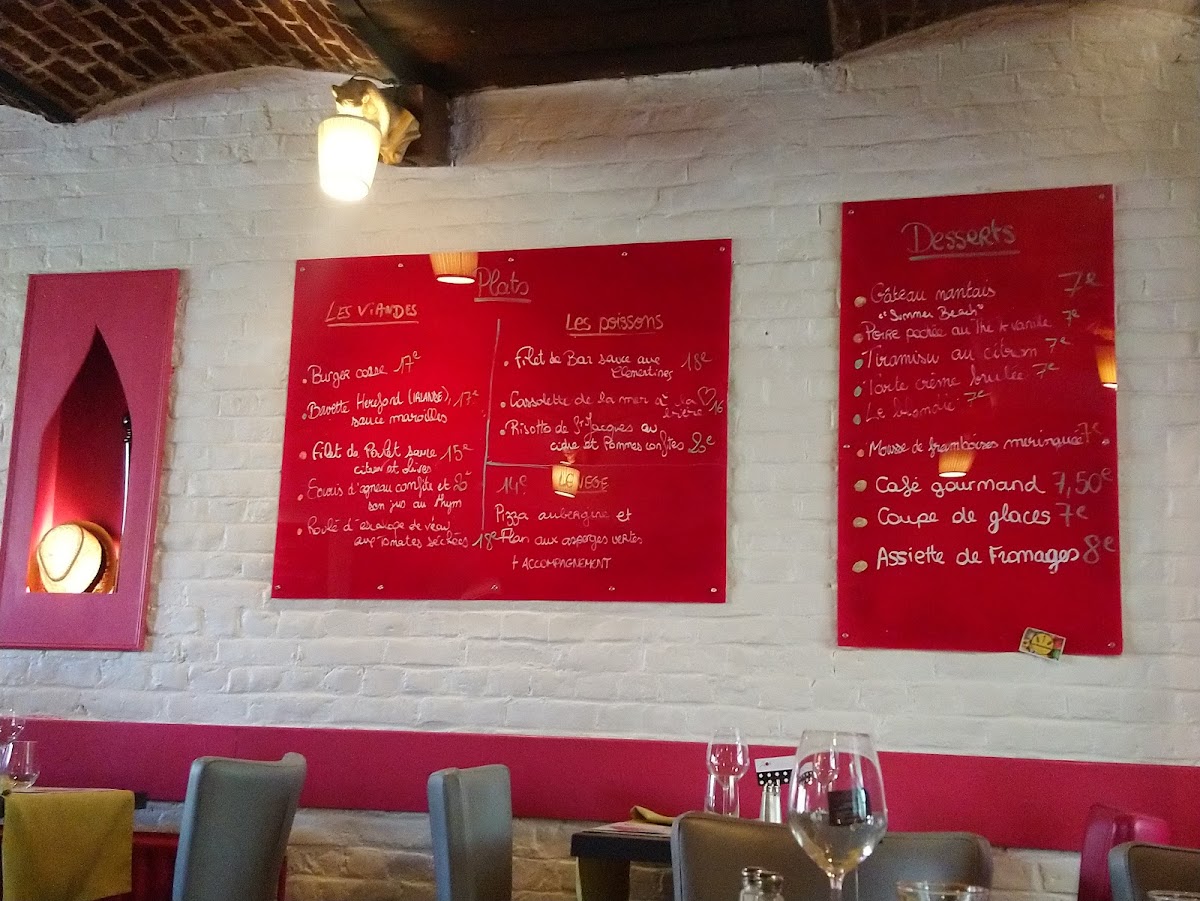 Plats
LES VIANDES
Burger 17€
Bavette Hereford (IRLANDE), 17€
sauce maroilles
Filet de Poulet sauce 15€
citron et olives
Souris d'agneau confite et
son jus au thym
Roulé d'escalope de veau
aux Tomates séchées 18€
Les poissons
Filet de Bar sauce aux 18€
Clémentines
Cassolette de la mer à la
bière 16
Risotto de St Jacques au
cidre et Pommes confites
14€ LE VEGE
Pizza aubergine et
Flan aux asperges vertes
+ ACCOMPAGNEMENT
Desserts
Gâteau nantais 7€
"Simmer Beach"
Poire pochée au Thé & vanille 7€
Tiramisu au citron 7€
Tarte crème brulée 7€
Le blondie 7€
Mousse de framboises meringuée 7€
Café gourmand 7,50€
Coupe de glaces 7€
Assiette de Fromages 8€